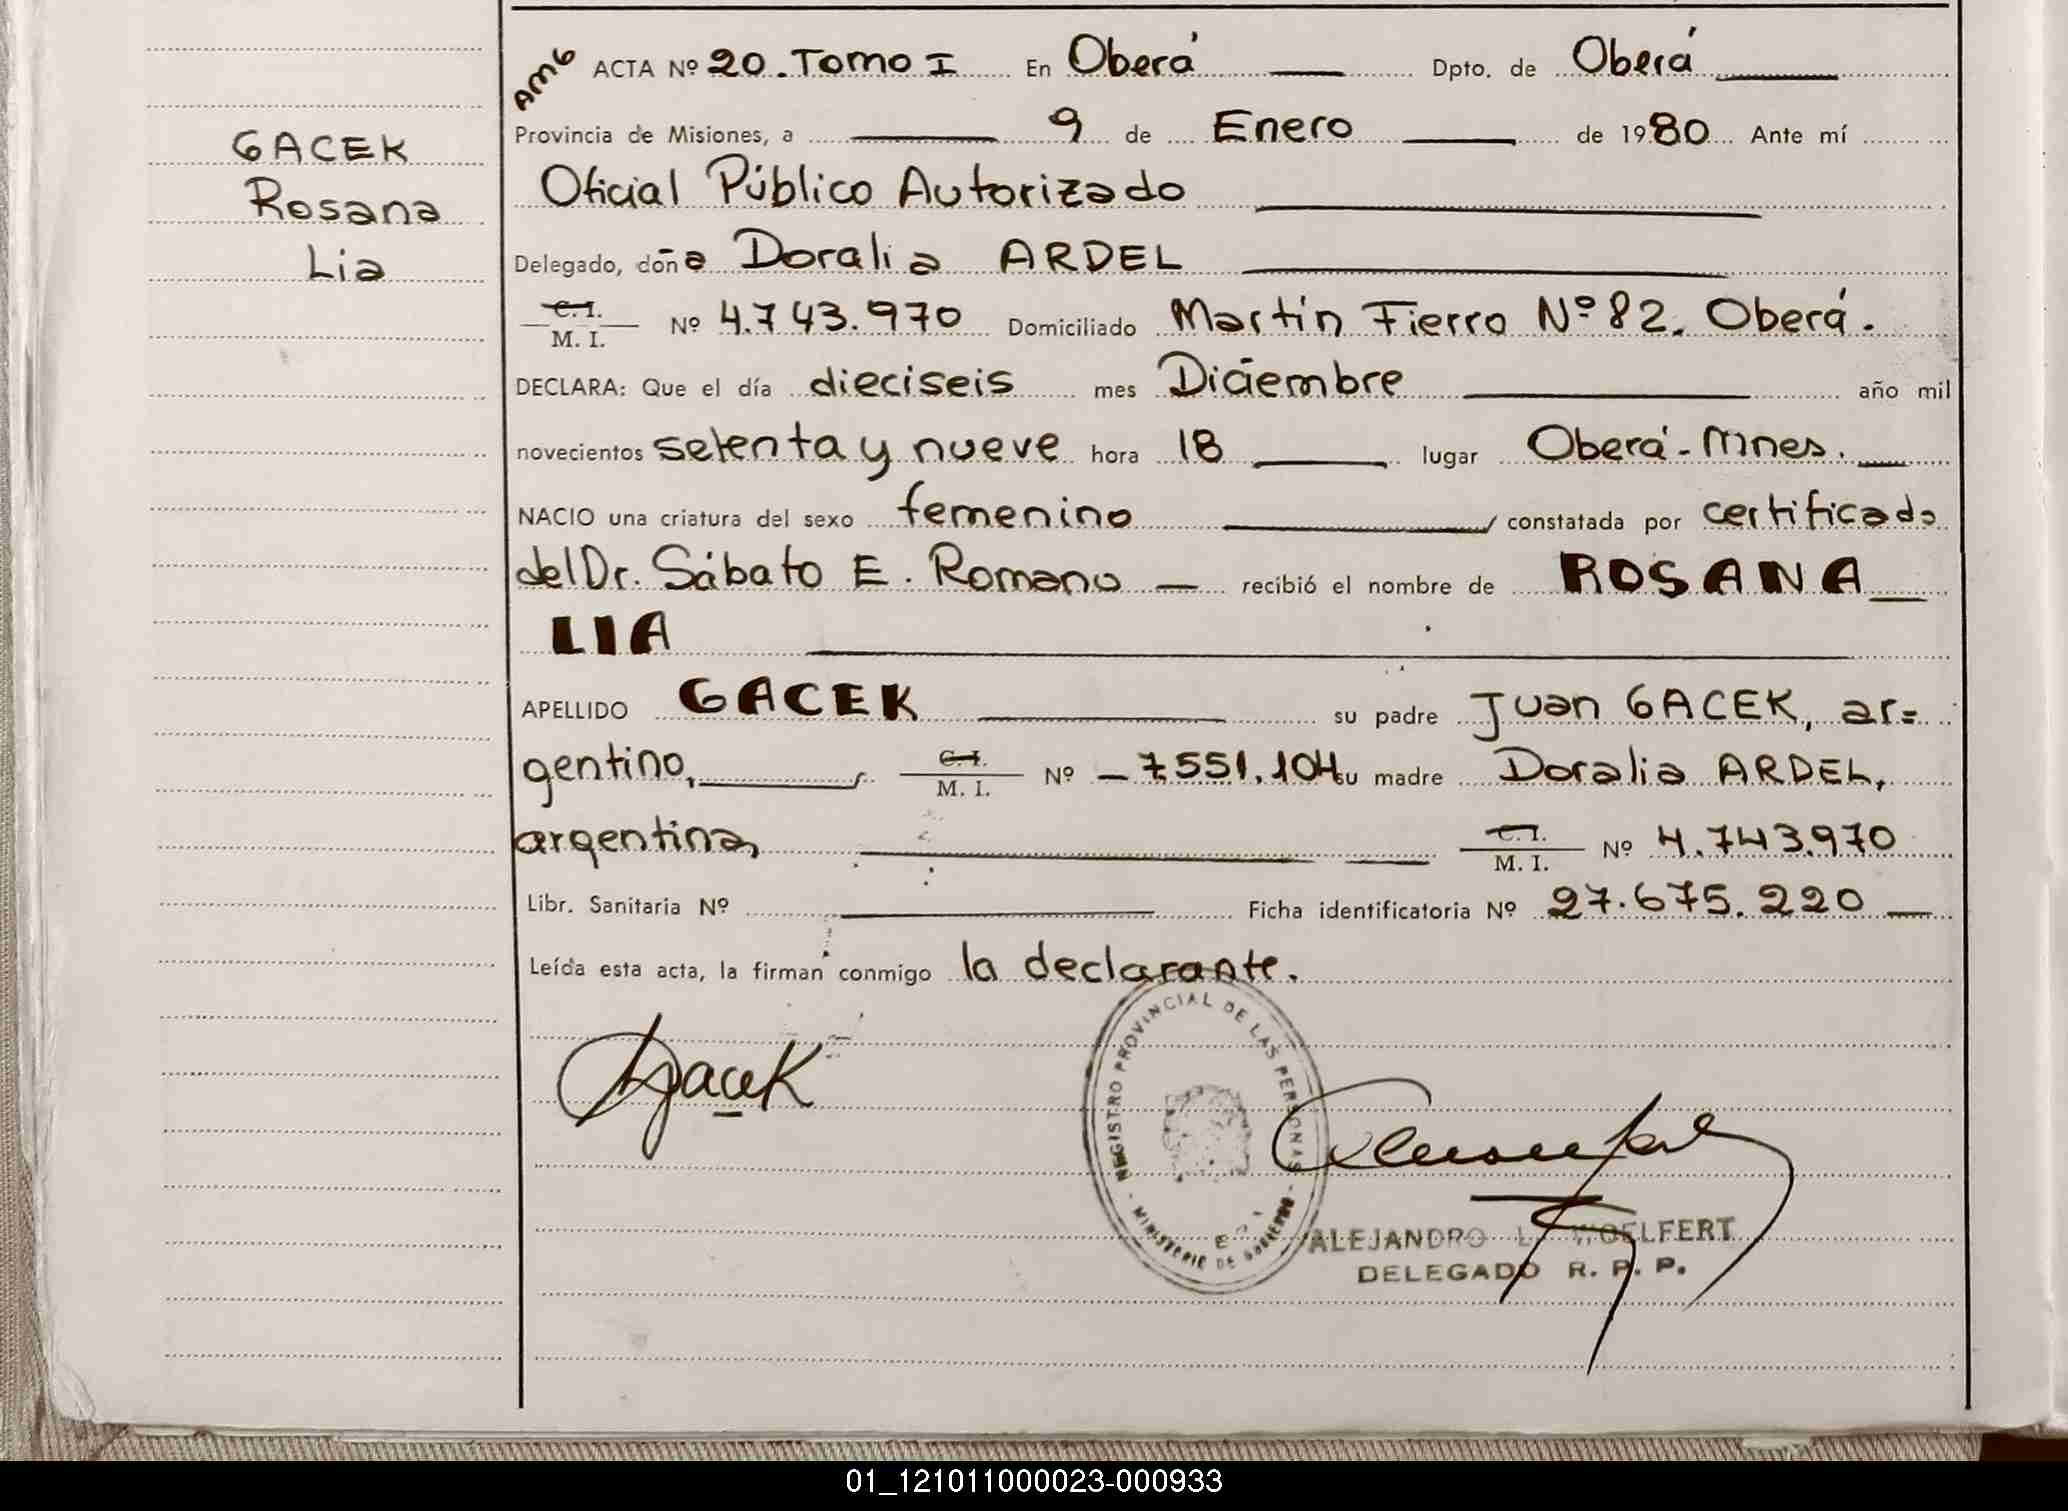 GACEK
Rosana
Lia
AMG
ACTA Nº 20. Tomo I En Oberá Dpto. de Oberá
Provincia de Misiones, a 9 de Enero de 1980 Ante mí
Oficial Público Autorizado
Delegado, doña Doralia ARDEL
C. I. / M. I. Nº 4.743.970 Domiciliado Martín Fierro Nº 82. Oberá.
DECLARA: Que el día dieciseis mes Diciembre año mil
novecientos setenta y nueve hora 18 lugar Oberá-Mnes.
NACIO una criatura del sexo femenino constatada por certificado
del Dr. Sábato E. Romano recibió el nombre de ROSANA
LIA
APELLIDO GACEK su padre Juan GACEK, ar=
gentino, C. I. / M. I. Nº 7551.104 su madre Doralia ARDEL,
argentina, C. I. / M. I. Nº 4.743.970
Libr. Sanitaria Nº Ficha identificatoria Nº 27.675.220
Leída esta acta, la firman conmigo la declarante.
Gacek
REGISTRO PROVINCIAL DE LAS PERSONAS - MINISTERIO DE GOBIERNO -
ALEJANDRO L. WOELFERT
DELEGADO R. P. P.
01_121011000023-000933